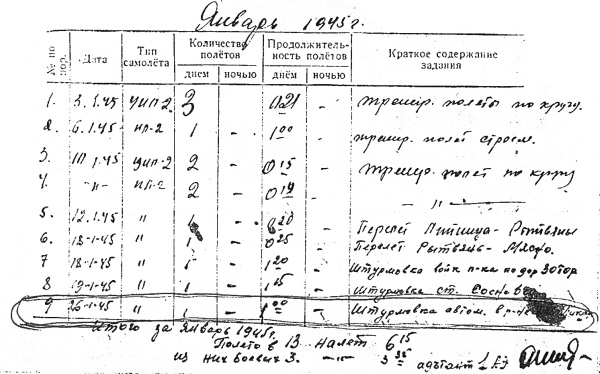 Январь 1945 г.
№ по пор. Дата Тип самолёта Количество полётов Продолжительность полётов Краткое содержание задания
днем ночью днём ночью
1. 3.1.45 УИЛ-2 3 - 0 21 - тренир. полеты по кругу.
2. 6.1.45 ИЛ-2 1 - 1 00 - тренир. полет строем.
3. 11.1.45 УИЛ-2 2 - 0 15 - тренир. полет по кругу
4. -"- ИЛ-2 2 - 0 14 - -"-
5. 12.1.45 " 1 - 0 20 - Перелет - Рытвяны
6. 18-1-45 " 1 - 0 25 - Перелет Рытвяны -
7 18-1-45 " 1 - 1 20 - Штурмовка войск п-ка по дор
8 19-1-45 " 1 - 1 15 - Штурмовка ст.
9 26-1-45 " 1 - 1 00 - Штурмовка автом. в р-не
Итого за январь 1945 г.
Полетов 13 налет 6 15
из них боевых 3. -"- 3 35 адъютант 1 АЭ